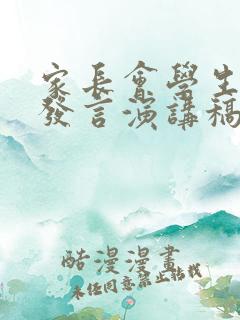 家長會學生
發言演講稿
酷漫漫畫
未经同意禁止转载